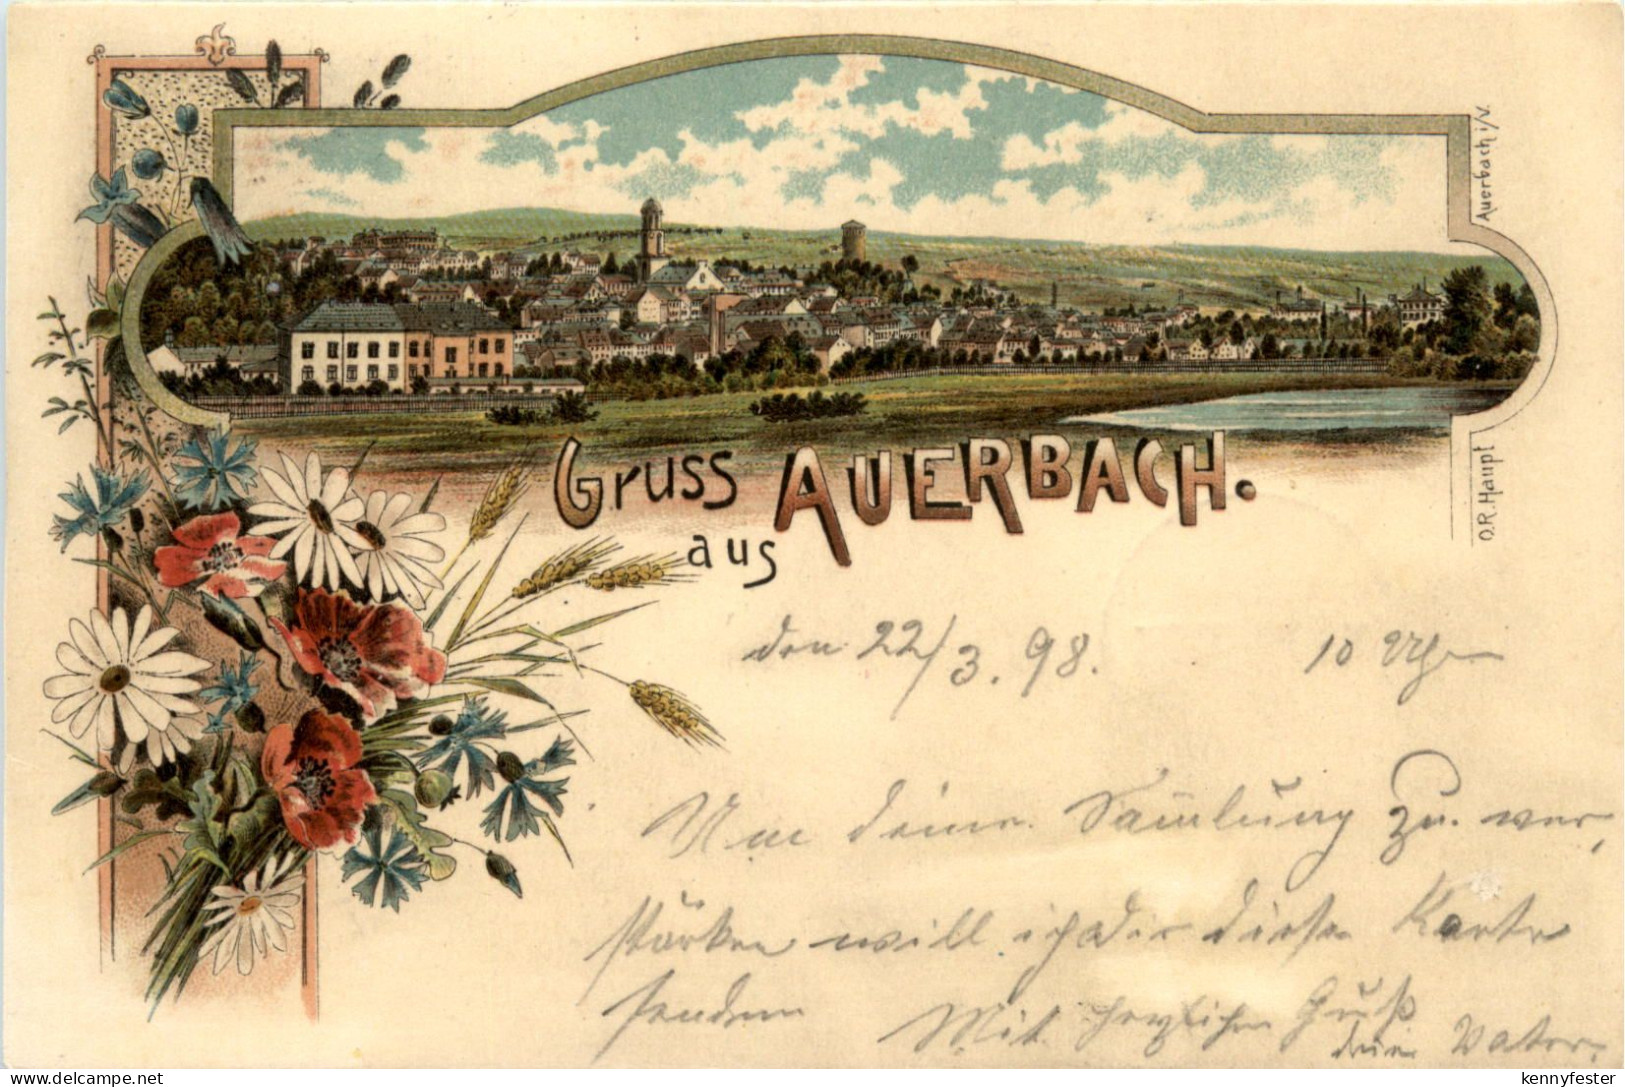 Auerbach i/V.
O.R. Haupt
Gruss
aus
AUERBACH.
den 22/3.98. 10 Uhr
Um deine Samlung zu ver,
stärken will ich dir diese Karte
senden Mit herzlichen Gruß
dein Vater.
kennyfester